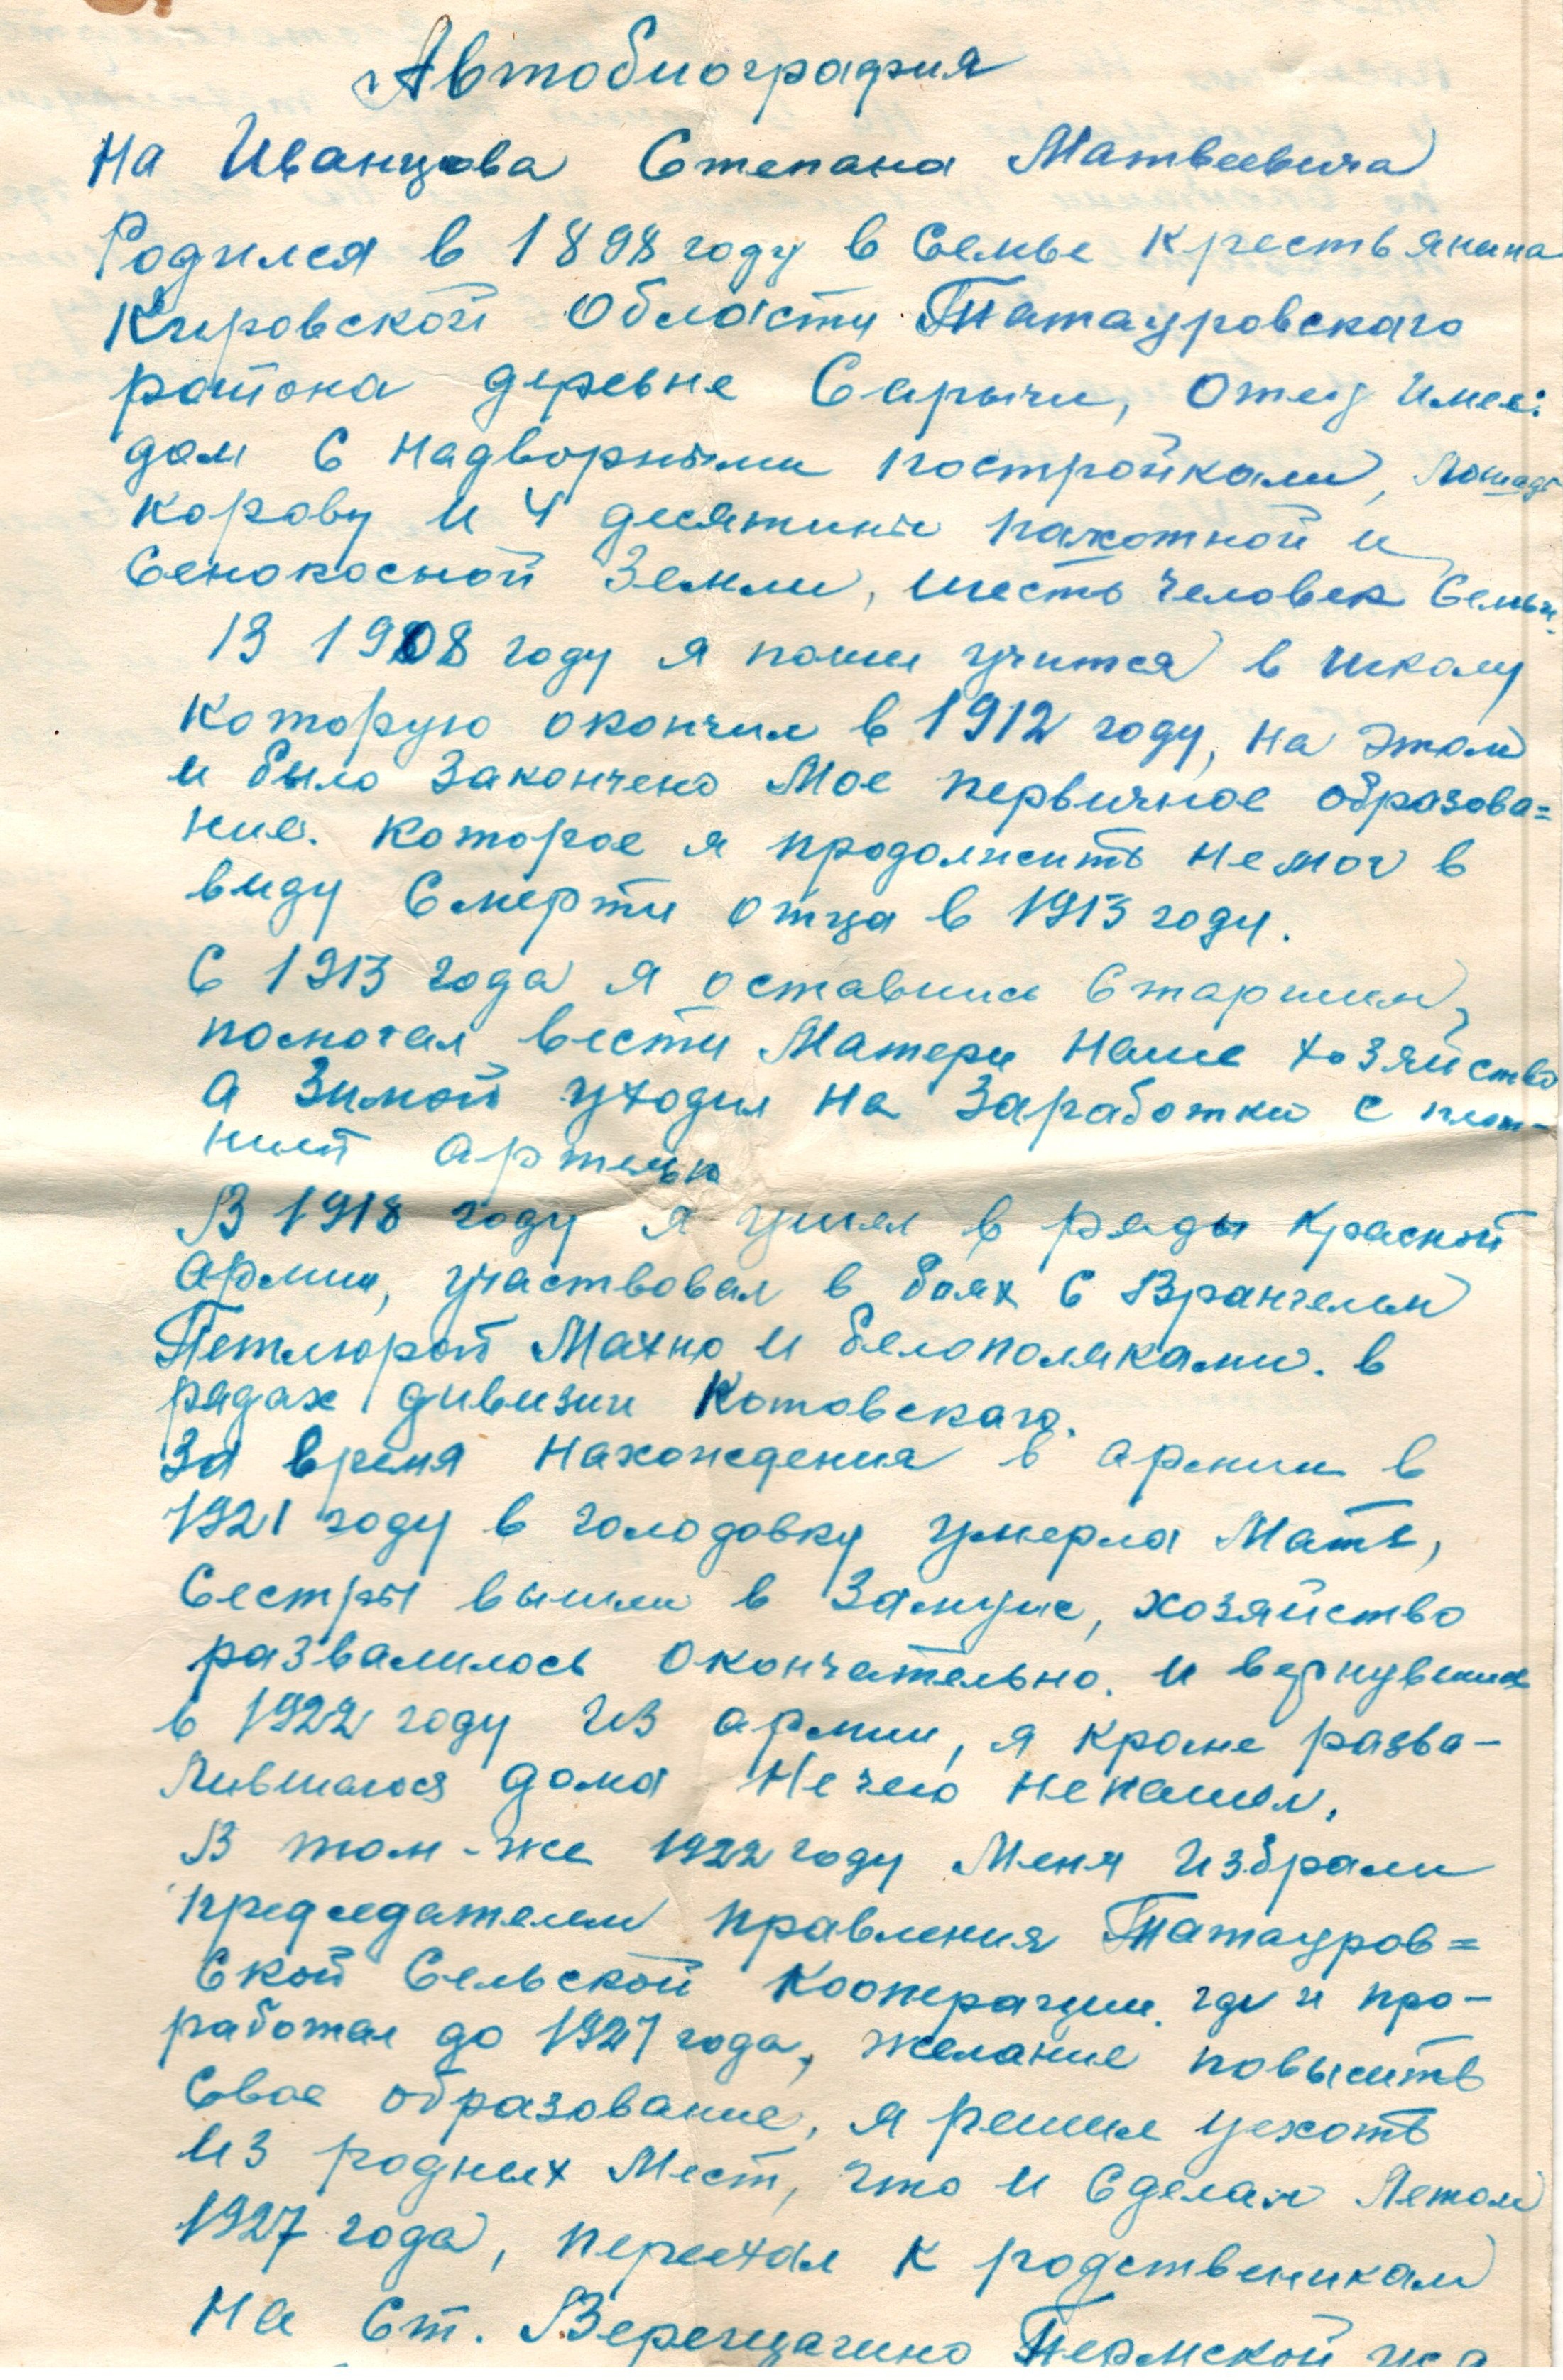 Автобиография
На Иванцова Степана Матвеевича
Родился в 1898 году в семье крестьянина
Кировской области Татауровского
района деревне Сарычи, отец имел:
дом с надворными постройками, лошадь
корову и 4 десятины пахотной и
сенокосной земли, шесть человек семьи.
В 1908 году я пошел учится в школу
которую окончил в 1912 году, на этом
и было закончено мое первичное образова=
ние. которое я продолжить не мог в
виду смерти отца в 1913 году.
С 1913 года я оставшись старшим,
помогал вести матери наше хозяйство
а зимой уходил на заработки с плот-
ничей артелью
В 1918 году я ушел в ряды красной
армии, участвовал в боях с Врангелем
Петлюрой Махно и белополяками. в
рядах дивизии Котовского.
За время нахождения в армии в
1921 году в голодовку умерла мать,
сестры вышли в замуж, хозяйство
развалилось окончательно. и вернувшись
в 1922 году из армии, я кроме разва-
лившегося дома не чего не нашел.
В том-же 1922 году меня избрали
председателем правления Татауров=
ской сельской кооперации. где и про-
работал до 1927 года, желание повысить
свое образование, я решил уехать
из родных мест, что и сделал летом
1927 года, переехал к родственикам
на ст. Верещагино Пермской ж д